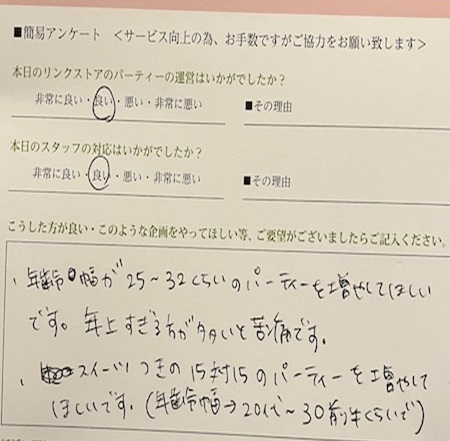 ■簡易アンケート <サービス向上の為、お手数ですがご協力をお願い致します>
本日のリンクストアのパーティーの運営はいかがでしたか?
非常に良い・良い・悪い・非常に悪い ■その理由
本日のスタッフの対応はいかがでしたか?
非常に良い・良い・悪い・非常に悪い ■その理由
こうした方が良い・このような企画をやってほしい等、ご要望がございましたらご記入ください。
、年齢幅が25~32くらいのパーティーを増やしてほしい
です。年上すぎる方が多いと苦痛です。
、スイーツつきの15対15のパーティーを増やして
ほしいです。(年齢幅→20代~30前半くらいで)